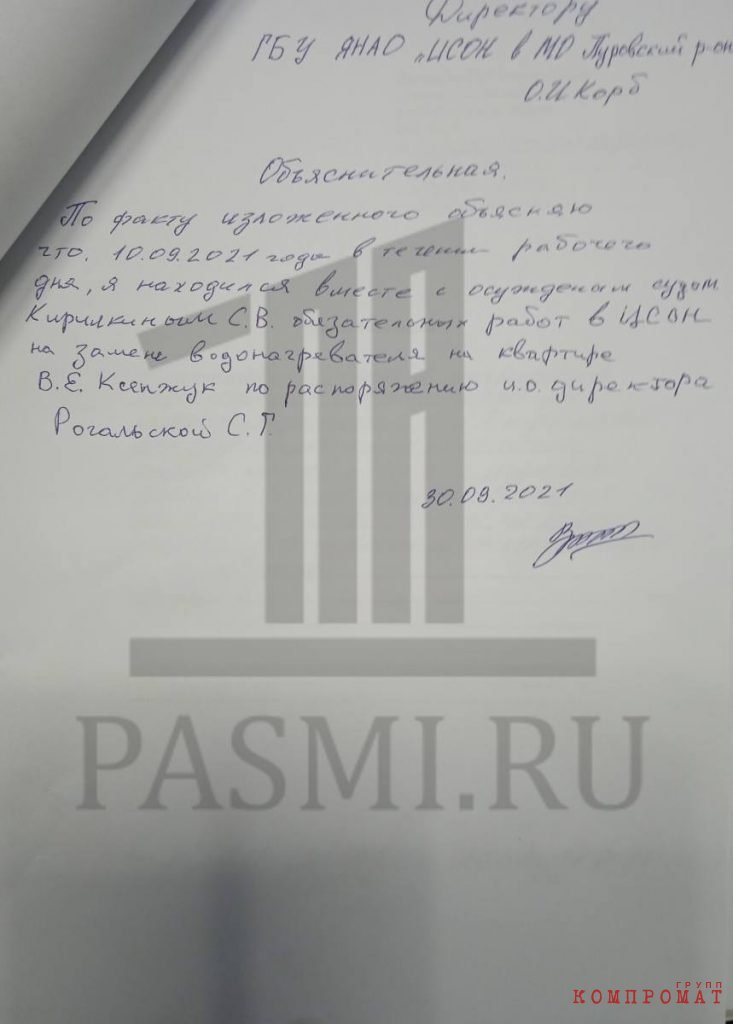 Директору
ГБУ ЯНАО "ЦСОН в МО Пуровский р-он
О.И Корб
Объяснительная.
По факту изложенного объясняю
что. 10.09.2021 года в течении рабочего
дня, я находился вместе с осужденым судом
Кирилкиным С.В. обязательных работ в ЦСОН
на замене водонагревателя на квартире
В.Е. Ксенжук по распоряжению и.о. директора
Рогальской С.Г.
30.09.2021
PASMI.RU
ГРУПП
КОМПРОМАТ